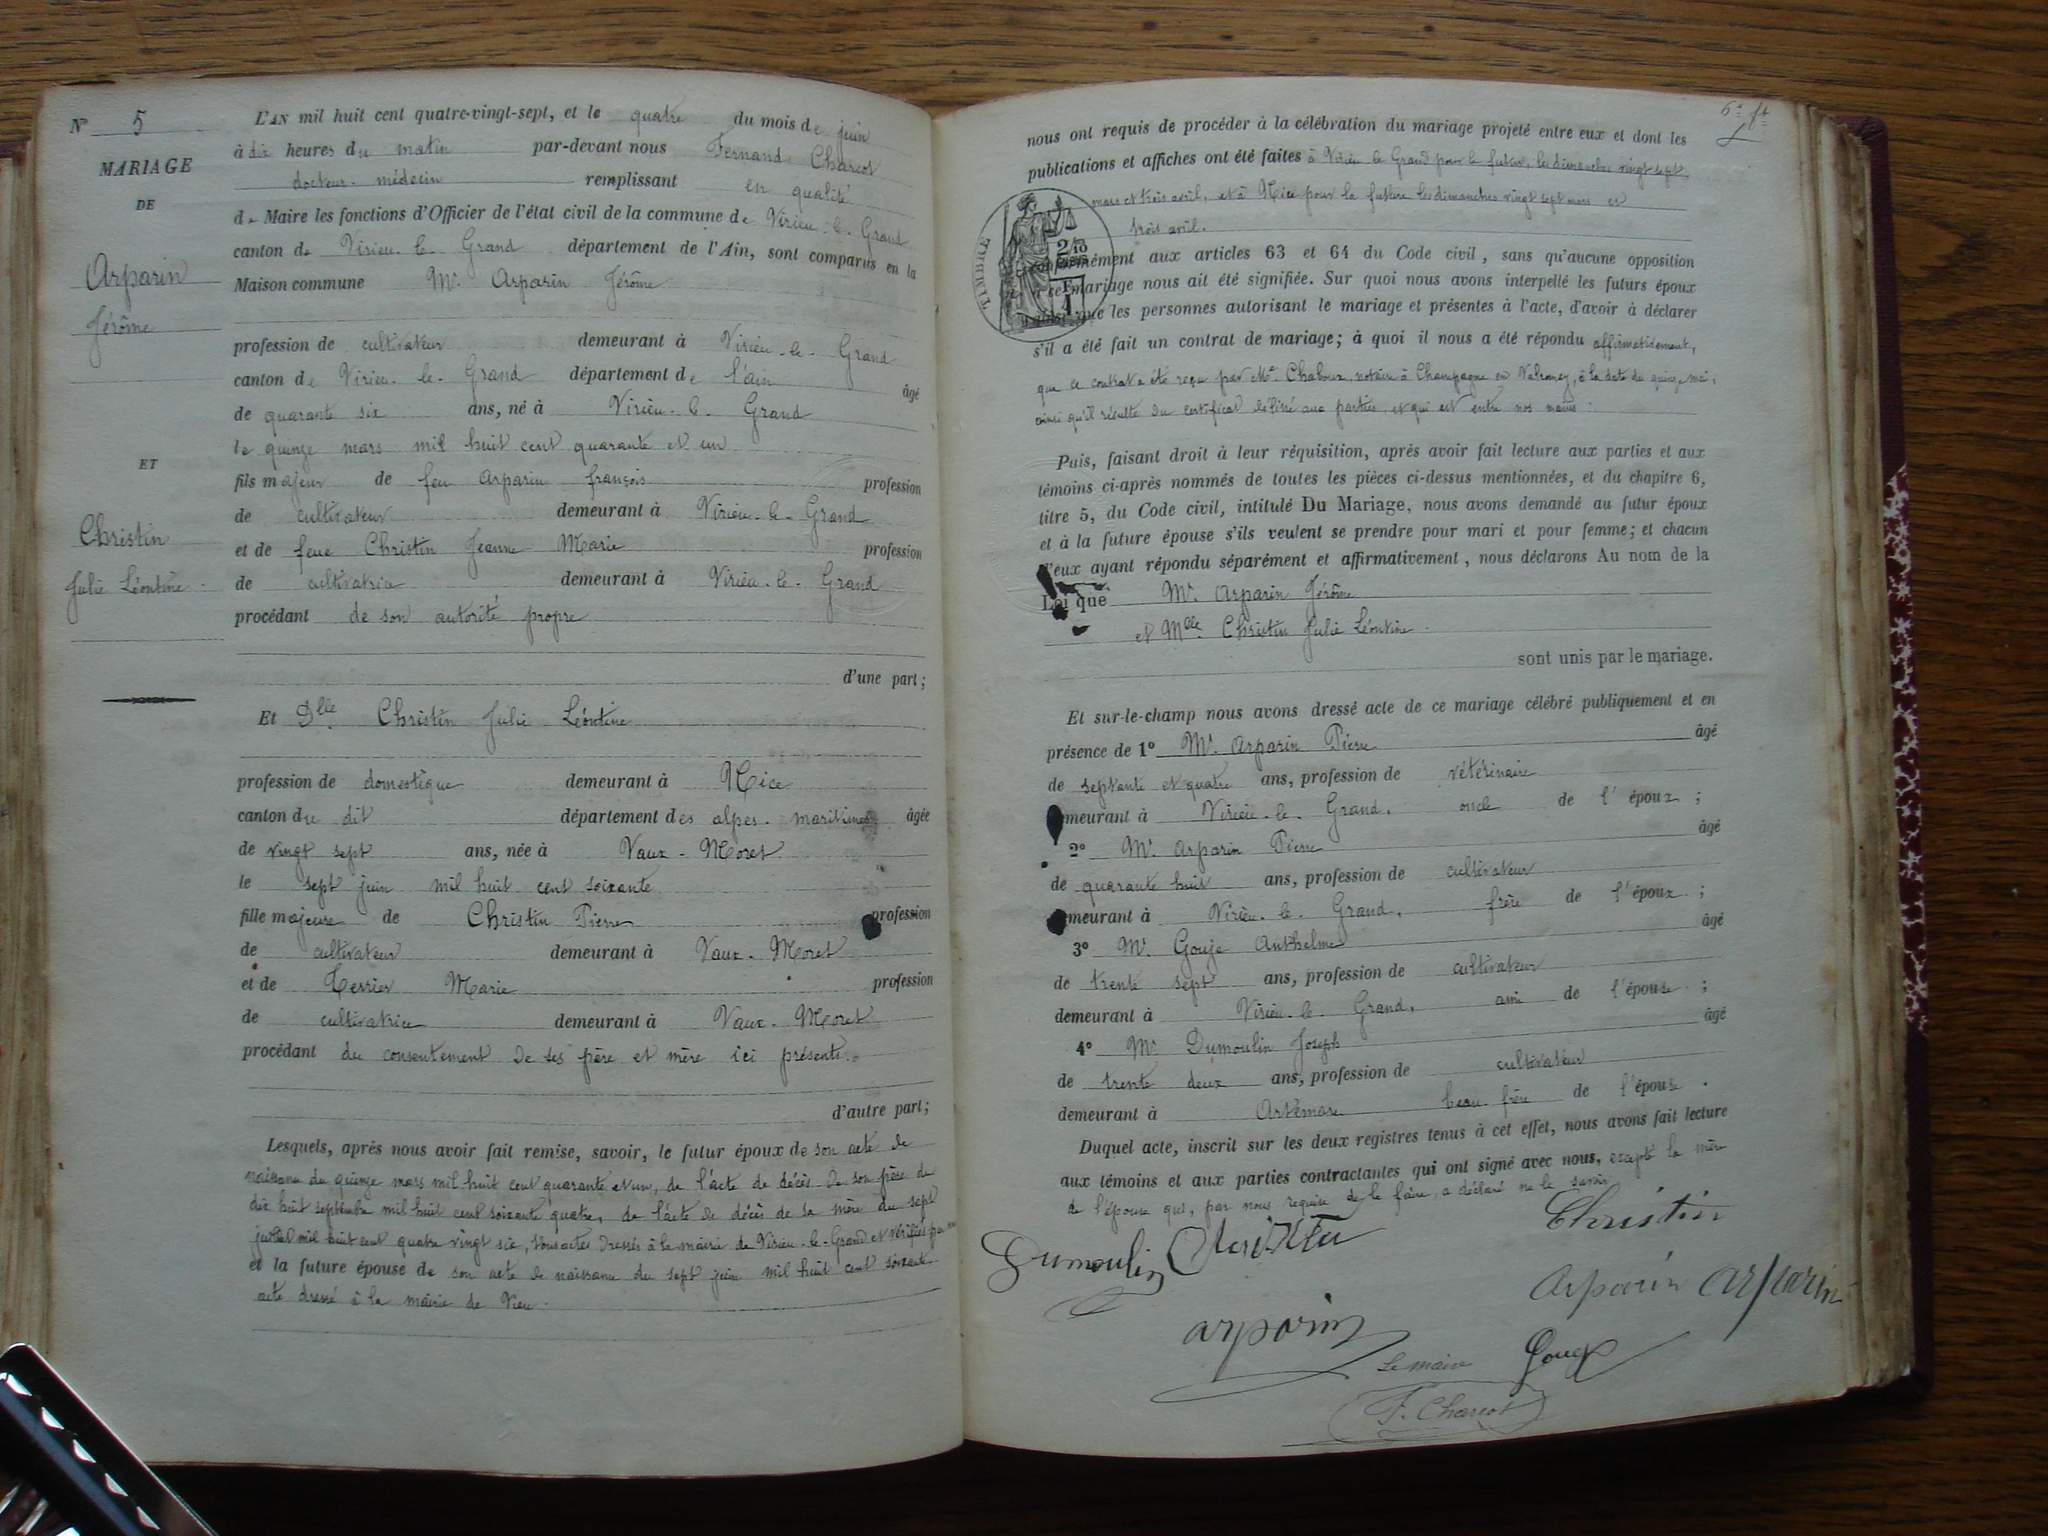 N° 5
MARIAGE
DE
Arparin
Jérôme
ET
Christin
Julie Léontine
L'AN mil huit cent quatre-vingt-sept, et le quatre du mois de juin
à dix heures du matin par-devant nous Fernand Charcot
docteur-médecin remplissant en qualité
de Maire les fonctions d'Officier de l'état civil de la commune de Virieu-le-Grand
canton de Virieu-le-Grand département de l'Ain, sont comparus en la
Maison commune Mr. Arparin Jérôme
profession de cultivateur demeurant à Virieu-le-Grand
canton de Virieu-le-Grand département de l'ain âgé
de quarante six ans, né à Virieu-le-Grand
le quinze mars mil huit cent quarante et un
fils majeur de feu Arparin françois profession
de cultivateur demeurant à Virieu-le-Grand
et de feue Christin Jeanne Marie profession
de cultivatrice demeurant à Virieu-le-Grand
procédant de son autorité propre
d'une part;
Et Dlle Christin Julie Léontine
profession de domestique demeurant à Nice
canton du dit département des alpes-maritimes âgée
de vingt sept ans, née à Vaux-Moret
le sept juin mil huit cent soixante
fille majeure de Christin Pierre profession
de cultivateur demeurant à Vaux-Moret
et de Terrier Marie profession
de cultivatrice demeurant à Vaux-Moret
procédant du consentement de ses père et mère ici présents.
d'autre part;
Lesquels, après nous avoir fait remise, savoir, le futur époux de son acte de
naissance du quinze mars mil huit cent quarante et un, de l'acte de décès de son père du
dix huit septembre mil huit cent soixante quatre, de l'acte de décès de sa mère du sept
juillet mil huit cent quatre vingt six, tous actes dressés à la mairie de Virieu-le-Grand et vérifiés par nous
et la future épouse de son acte de naissance du sept juin mil huit cent soixante
acte dressé à la mairie de Vieu.
6e ft
nous ont requis de procéder à la célébration du mariage projeté entre eux et dont les
publications et affiches ont été faites à Virieu le Grand pour le futur, les dimanches vingt sept
mars et trois avril, et à Nice pour la future les dimanches vingt sept mars et
trois avril.
TIMBRE
2/10
conformément aux articles 63 et 64 du Code civil, sans qu'aucune opposition
à ce mariage nous ait été signifiée. Sur quoi nous avons interpellé les futurs époux
ainsi que les personnes autorisant le mariage et présentes à l'acte, d'avoir à déclarer
s'il a été fait un contrat de mariage; à quoi il nous a été répondu affirmativement,
que ce contrat a été reçu par Me Chaboux, notaire à Champagne en Valromey, à la date du quinze mai,
ainsi qu'il résulte du certificat délivré aux parties, et qui est entre nos mains.
Puis, faisant droit à leur réquisition, après avoir fait lecture aux parties et aux
témoins ci-après nommés de toutes les pièces ci-dessus mentionnées, et du chapitre 6,
titre 5, du Code civil, intitulé Du Mariage, nous avons demandé au futur époux
et à la future épouse s'ils veulent se prendre pour mari et pour femme; et chacun
d'eux ayant répondu séparément et affirmativement, nous déclarons Au nom de la
Loi que Mr. Arparin Jérôme
et Mlle Christin Julie Léontine.
sont unis par le mariage.
Et sur-le-champ nous avons dressé acte de ce mariage célébré publiquement et en
présence de 1° Mr. Arparin Pierre âgé
de septante et quatre ans, profession de vétérinaire
demeurant à Virieu-le-Grand, oncle de l'époux;
2° Mr. Arparin Pierre âgé
de quarante huit ans, profession de cultivateur
demeurant à Virieu-le-Grand, frère de l'époux;
3° Mr. Gouje Anthelme âgé
de trente sept ans, profession de cultivateur
demeurant à Virieu-le-Grand, ami de l'épouse;
4° Mr. Dumoulin Joseph âgé
de trente deux ans, profession de cultivateur
demeurant à Artemare beau-frère de l'épouse.
Duquel acte, inscrit sur les deux registres tenus à cet effet, nous avons fait lecture
aux témoins et aux parties contractantes qui ont signé avec nous, excepté la mère
de l'épouse qui, par nous requise de le faire, a déclaré ne le savoir
Christin
Dumoulin Christin
Arparin arparin
arparin
Le maire Gouje
F. Charcot